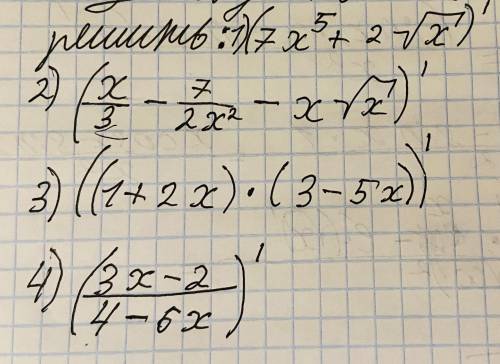 решить: 1) (7x⁵ + 2√x)'
2) (x/3 − 7/(2x²) − x√x)'
3) ((1+2x)·(3−5x))'
4) ((3x−2)/(4−5x))'